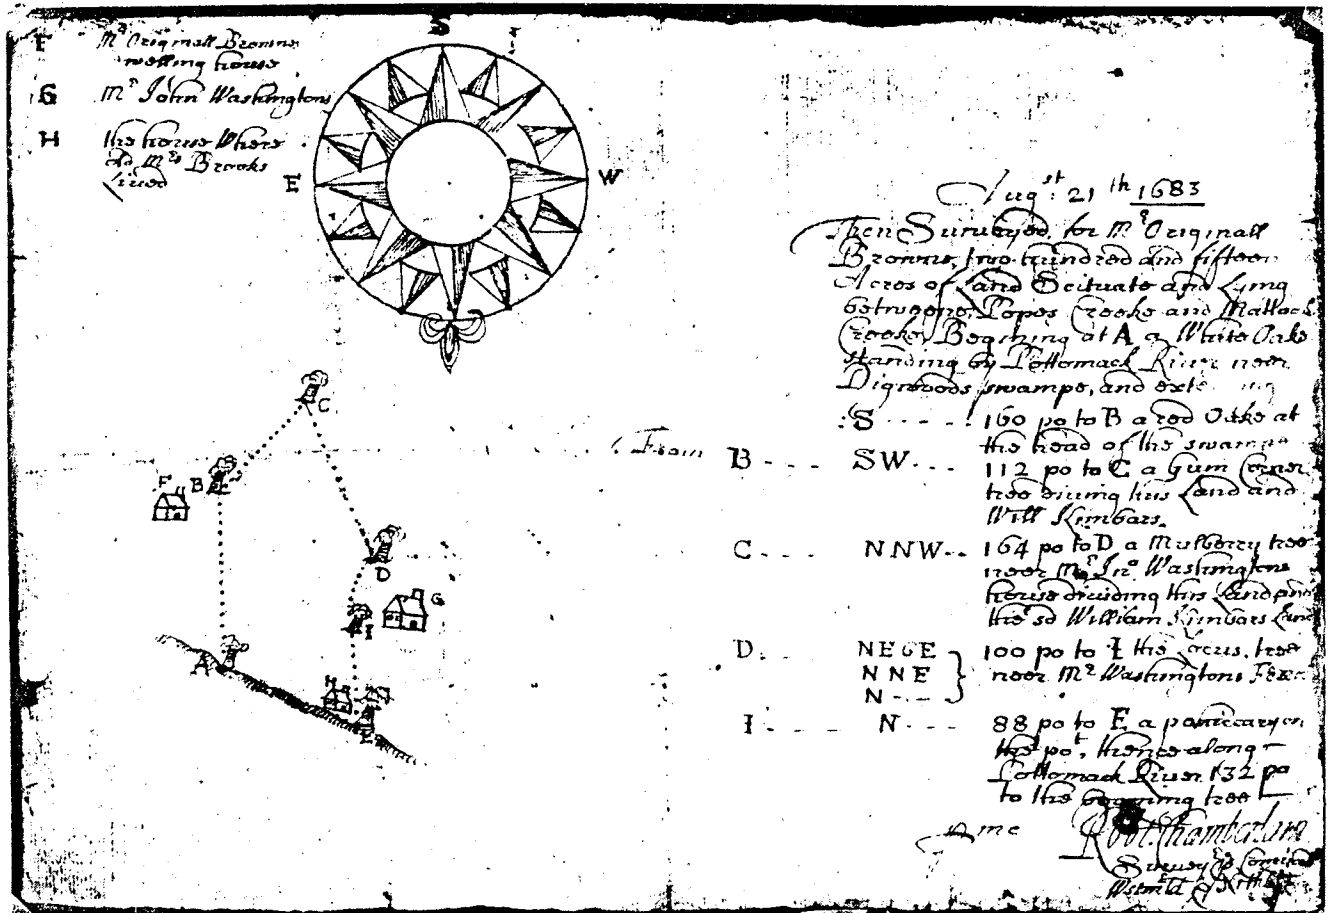 F Mr Originall Browns
welling house
G Mr John Washingtons
H the house Where
old Mrs Brooks
Lived
S
E
W
Augst: 21th 1683
Then Surveyed for Mr Originall
Browne, two hundred and fifteen
Acres of Land Scituate and Lying
betweene Popes Creeke and Mattock
Creeke, Begining at A a White Oake
standing by Pottomack River neer
Digwoods swampe, and exte
:S - - - - - 160 po to B a red Oake at
the head of the swampe
From B - - - SW - - - 112 po to C a Gum Corner
tree diuing this Land and
Will Kimbars.
C - - - NNW - - 164 po to D a Mulberry tree
neer Mr Jno Washingtons
house dividing this Land
the sd William Kimbars Land
D - - - NEGE
NNE
N - - -
100 po to I the Locus tree
neer Mr Washingtons
I - - - - N - - - 88 po to E a
the po t, thence along
Pottomack River 132 po
to the begining tree
me Robt. Chamberlain
Survey
C
F B
D
G
I
A
H
E